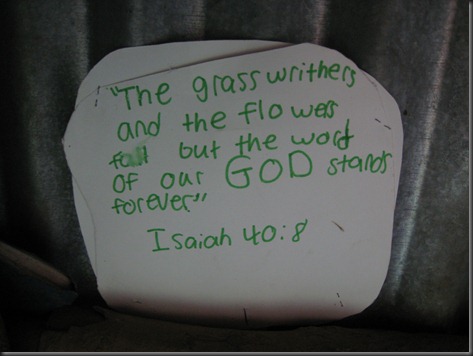 "The grass writhers
and the flowers
fall but the word
of our GOD stands
forever."
Isaiah 40:8